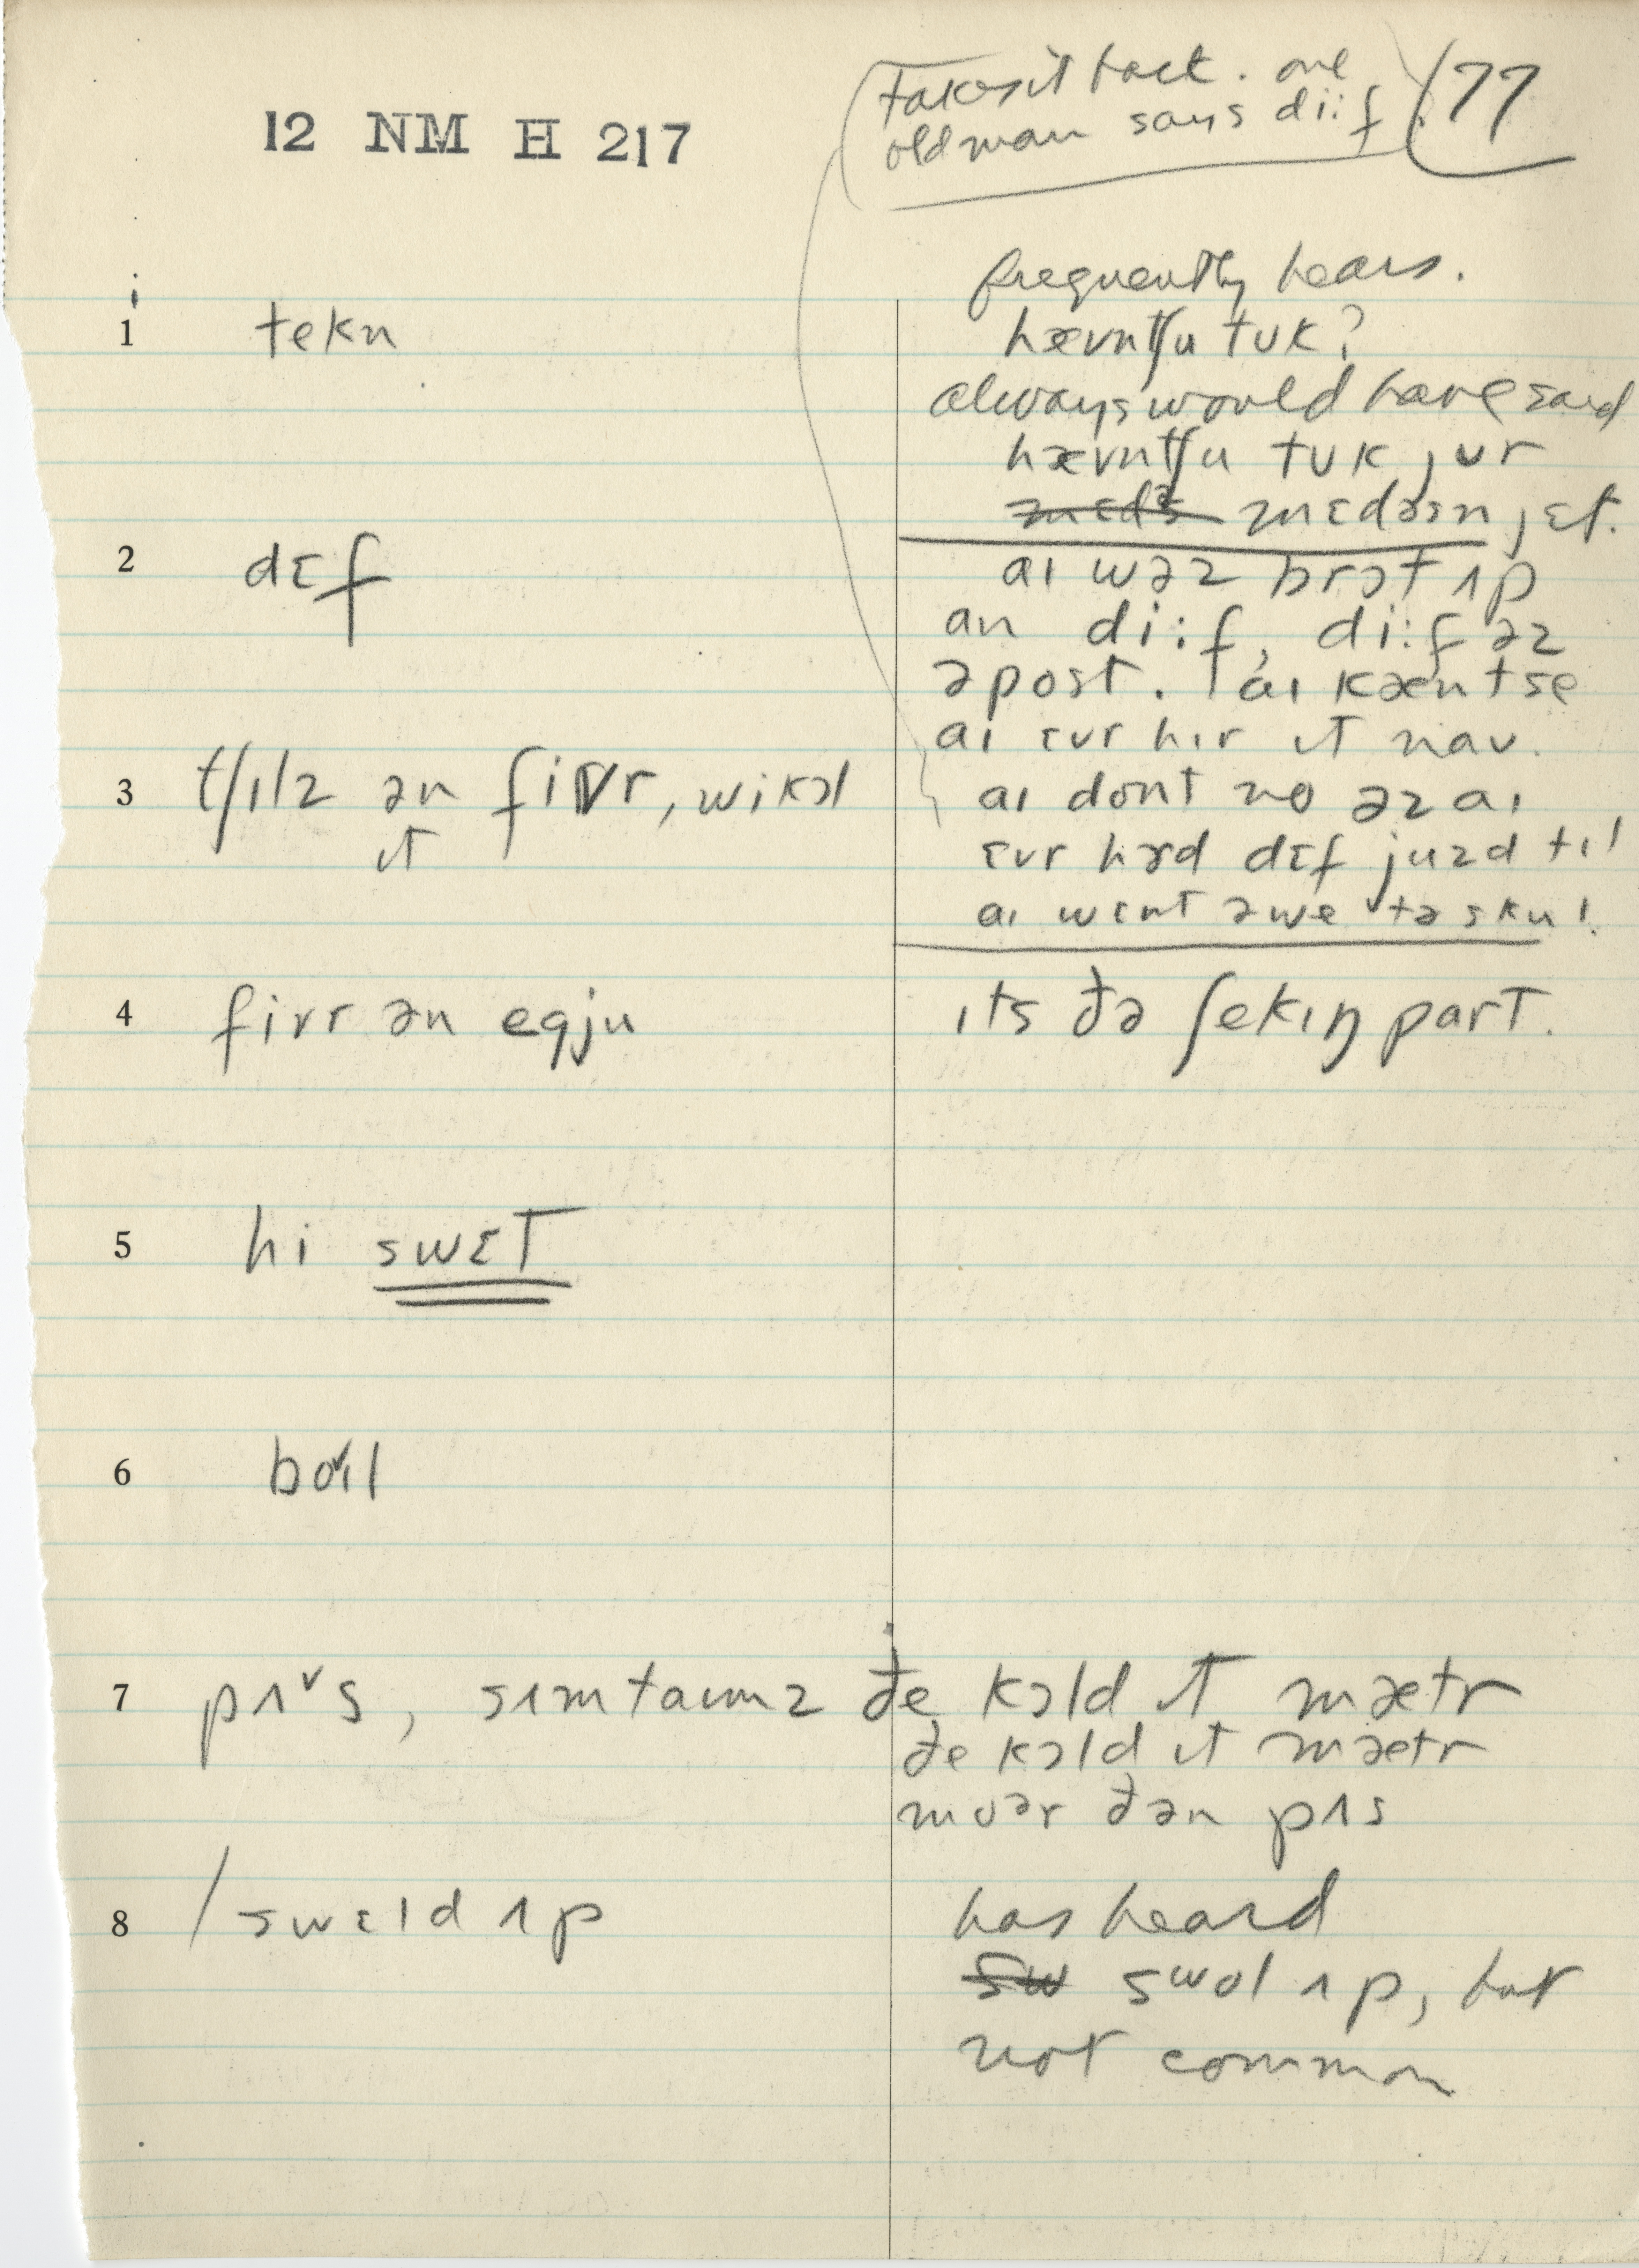 12 NM H 217
77
takes it back. one
old man says di:f
frequently hears.
1 tekn
hævntʃu tuk?
always would have said
hævntʃu tuk jur
mɛdəsn jɛt.
2 dɛf
aɪ wəz brɔt ʌp
an di:f, di:f əz
ə post. aɪ kæntse
aɪ ɛvr hɪr ɪt naʊ.
3 tʃɪlz ən fivr, wi kɔl
ɪt
aɪ dont no əz aɪ
ɛvr hɝd dɛf juzd tɪl
aɪ wɛnt əwe tə skul.
4 fivr ən egju
ɪts ðə ʃekɪŋ part.
5 hi swɛt
6 bɔɪl
7 pʌ˅s, sʌmtaɪmz ðe kɔld ɪt mætr
ðe kɔld ɪt mætr
moər ðən pʌs
8 / swɛld ʌp
has heard
sw swol ʌp, but
not common